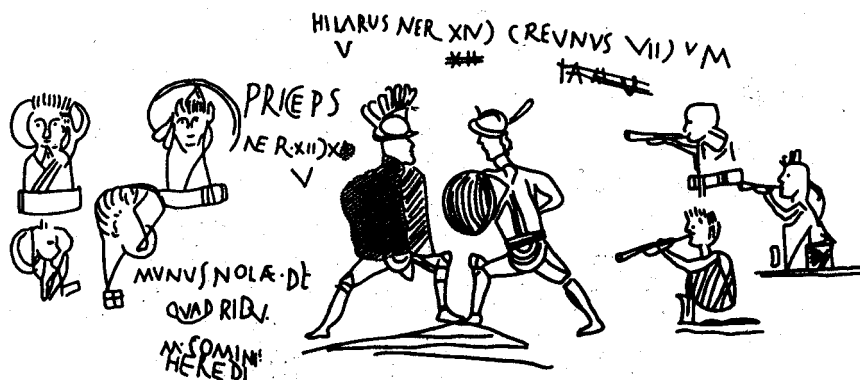 HILARUS NER XIV) CREVNVS VII) V M
V
PRICEPS
NER·XII)X
V
MVNUS NOLÆ·DE
QUADRIDV.
M·SOMINI
HEREDI